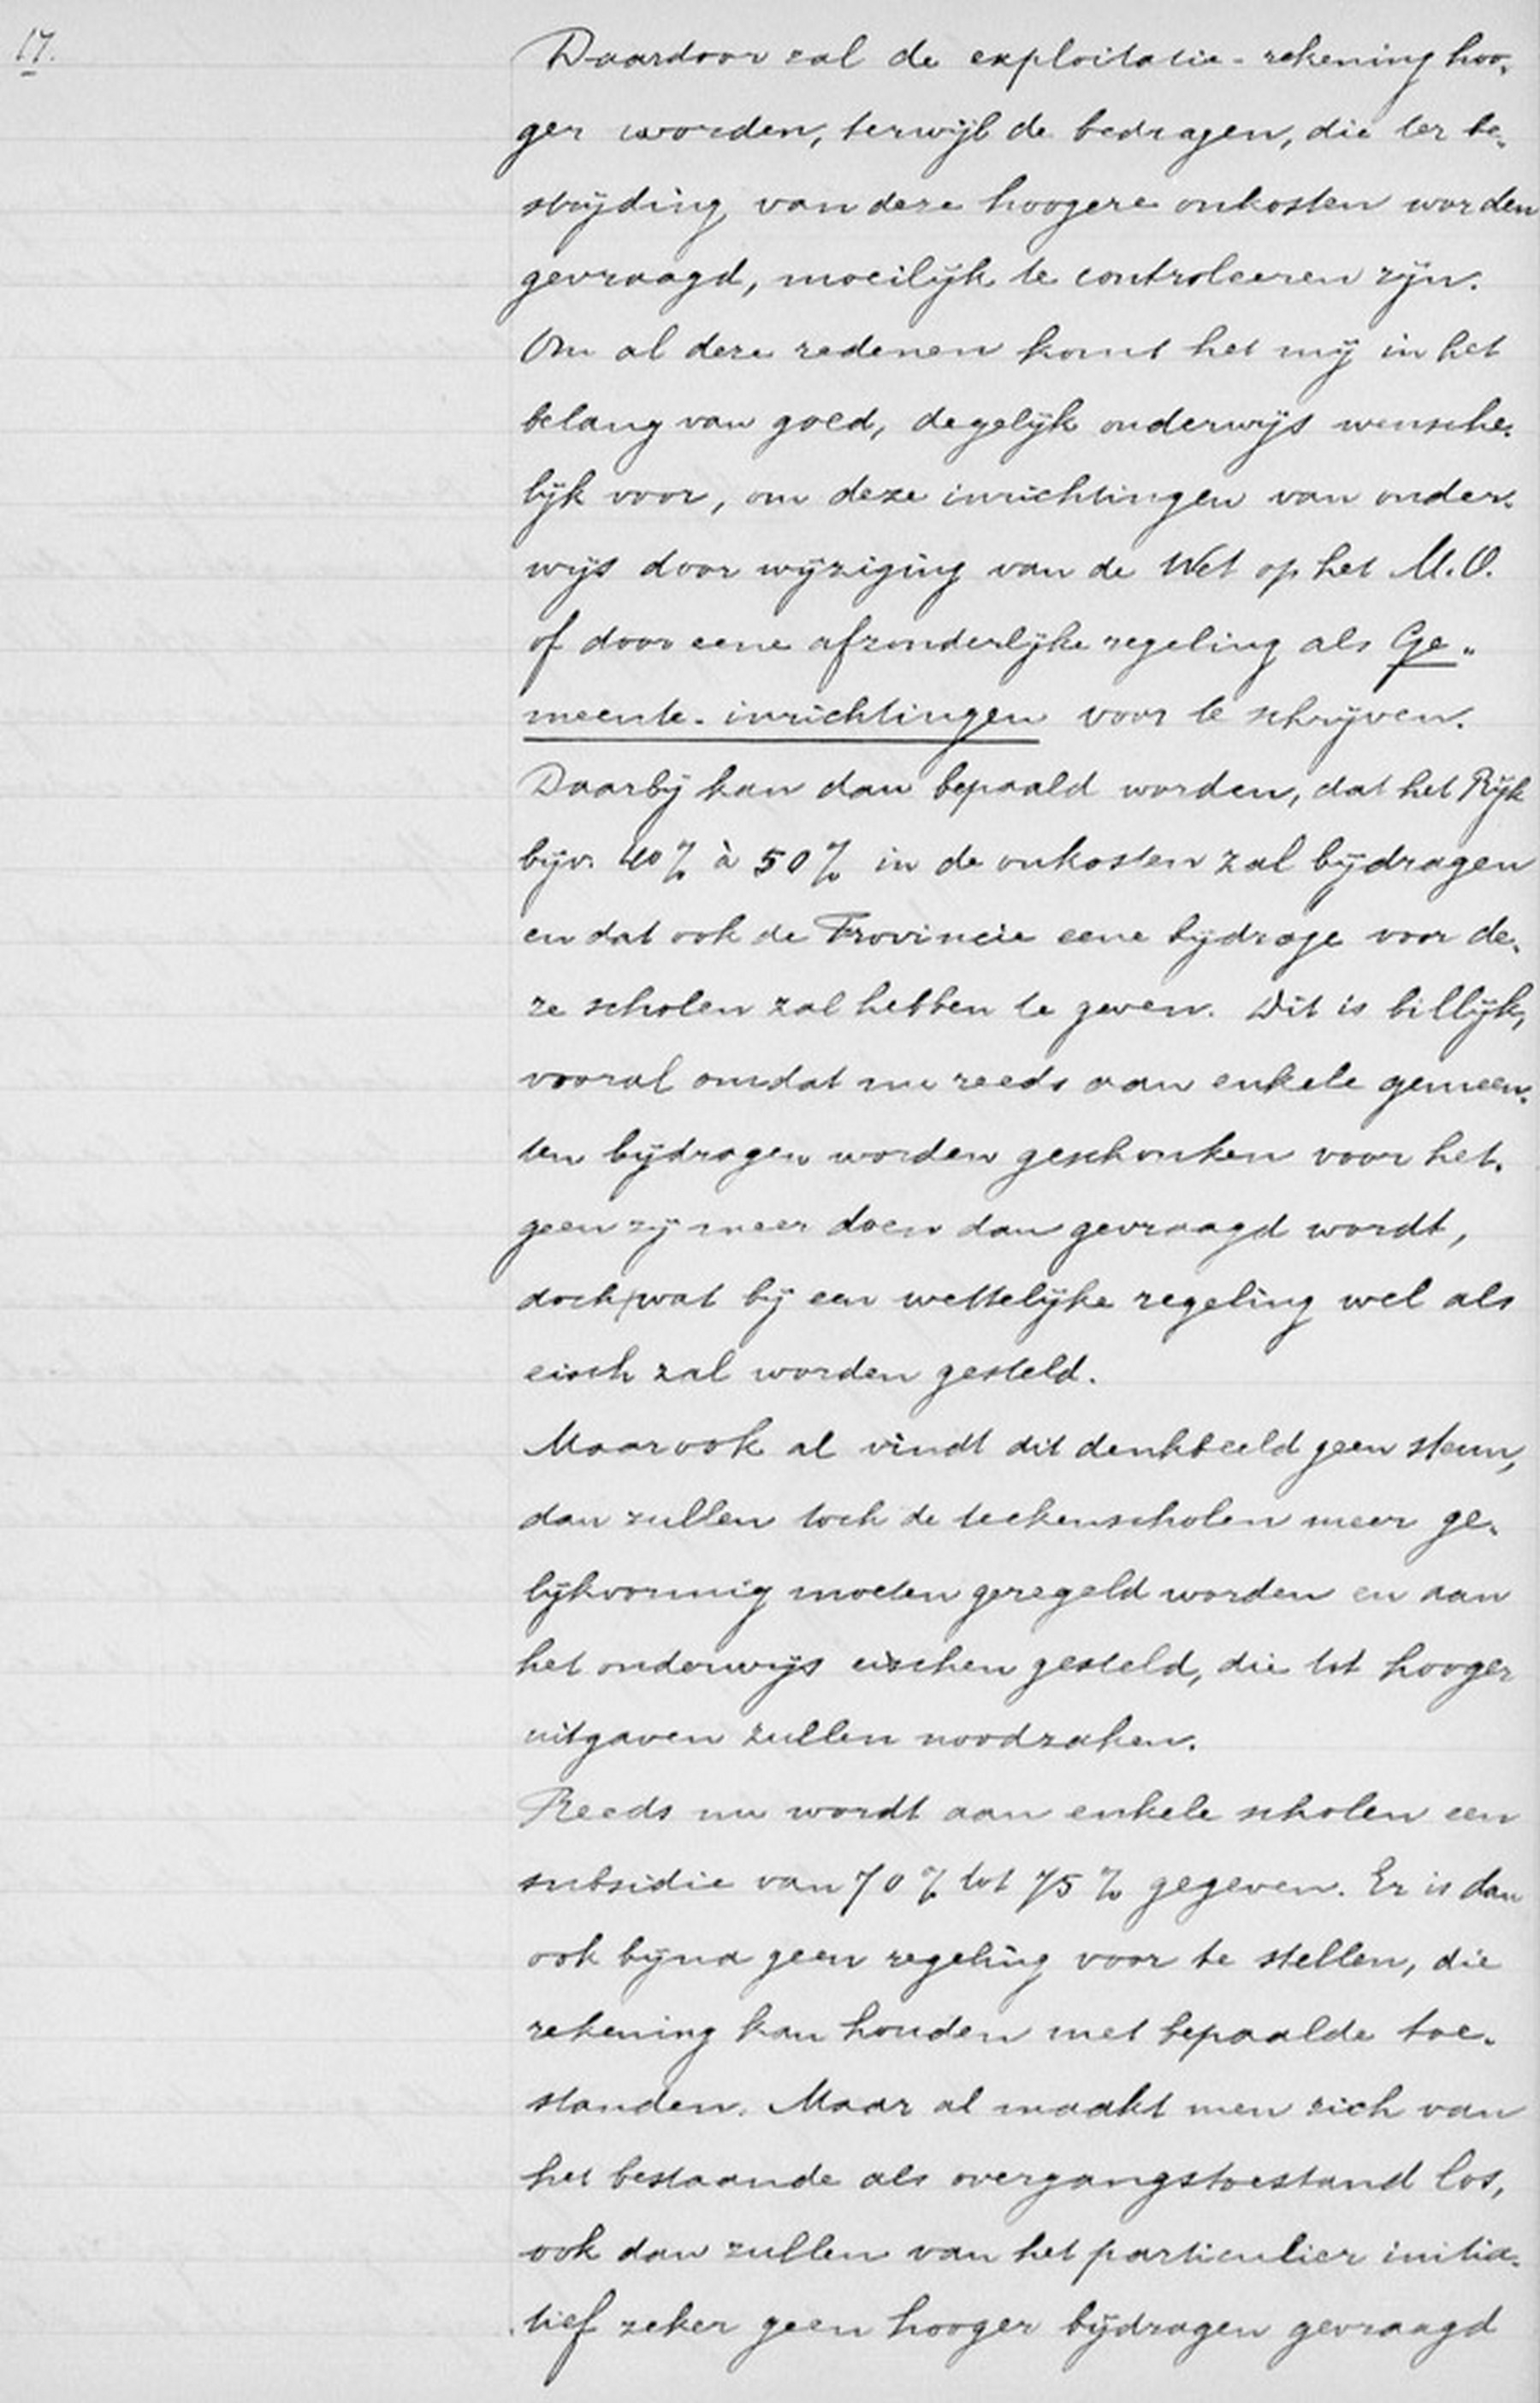 17.
Daardoor zal de exploitatie-rekening hoo-
ger worden, terwijl de bedragen, die ter be-
strijding van deze hoogere onkosten worden
gevraagd, moeilijk te controleeren zijn.
Om al deze redenen komt het mij in het
belang van goed, degelijk onderwijs wensche-
lijk voor, om deze inrichtingen van onder-
wijs door wijziging van de Wet op het M.O.
of door eene afzonderlijke regeling als Ge-
meente-inrichtingen voor te schrijven.
Daarbij kan dan bepaald worden, dat het Rijk
bijv. 40% à 50% in de onkosten zal bijdragen
en dat ook de Provincie eene bijdrage voor de-
ze scholen zal hebben te geven. Dit is billijk,
vooral omdat nu reeds aan enkele gemeen-
ten bijdragen worden geschonken voor het-
geen zij meer doen dan gevraagd wordt,
doch wat bij een wettelijke regeling wel als
eisch zal worden gesteld.
Maar ook al vindt dit denkbeeld geen steun,
dan zullen toch de teekenscholen meer ge-
lijkvormig moeten geregeld worden en aan
het onderwijs eischen gesteld, die tot hooger
uitgaven zullen noodzaken.
Reeds nu wordt aan enkele scholen een
subsidie van 70% tot 75% gegeven. Er is dan
ook bijna geen regeling voor te stellen, die
rekening kan houden met bepaalde toe-
standen. Maar al maakt men zich van
het bestaande als overgangstoestand los,
ook dan zullen van het particulier initia-
tief zeker geen hooger bijdragen gevraagd